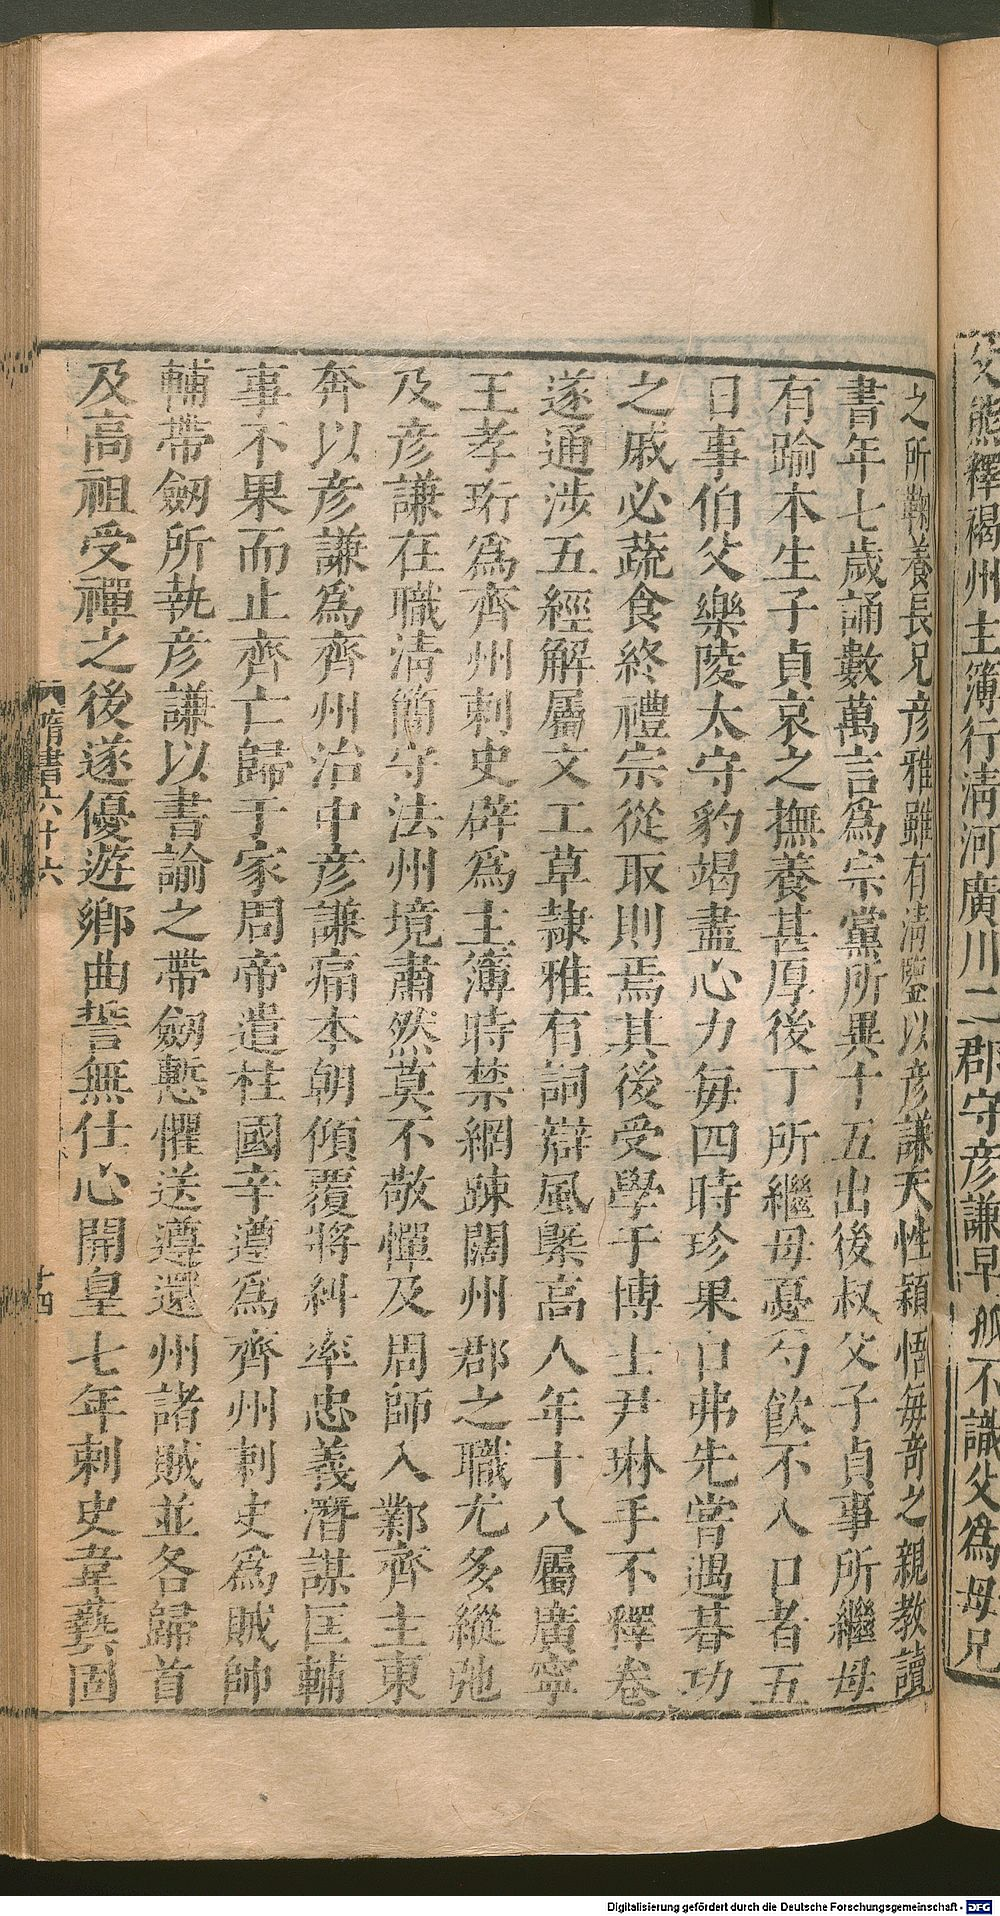 父熊釋褐州主簿行淸河廣川二郡守彥謙早孤不識父爲母兄
之所鞠養長兄彥雅雖有淸鑒以彥謙天性穎悟每奇之親教讀
書年七歲誦數萬言爲宗黨所異十五出後叔父子貞事所繼母
有踰本生子貞哀之撫養甚厚後丁所繼母憂勺飮不入口者五
日事伯父樂陵太守豹竭盡心力每四時珍果口弗先嘗遇朞功
之戚必蔬食終禮宗從取則焉其後受學于博士尹琳手不釋卷
遂通涉五經解屬文工草隸雅有詞辯風槩高人年十八屬廣寧
王孝珩爲齊州刺史辟爲主簿時禁網踈闊州郡之職尤多縱弛
及彥謙在職淸簡守法州境肅然莫不敬憚及周師入鄴齊主東
奔以彥謙爲齊州治中彥謙痛本朝傾覆將糾率忠義潛謀匡輔
事不果而止齊亡歸于家周帝遣柱國辛遵爲齊州刺史爲賊帥
輔帶劒所執彥謙以書諭之帶劒慙懼送遵還州諸賊並各歸首
及高祖受禪之後遂優遊鄉曲誓無仕心開皇七年刺史韋藝固
隋書六十六
十四
Digitalisierung gefördert durch die Deutsche Forschungsgemeinschaft - DFG